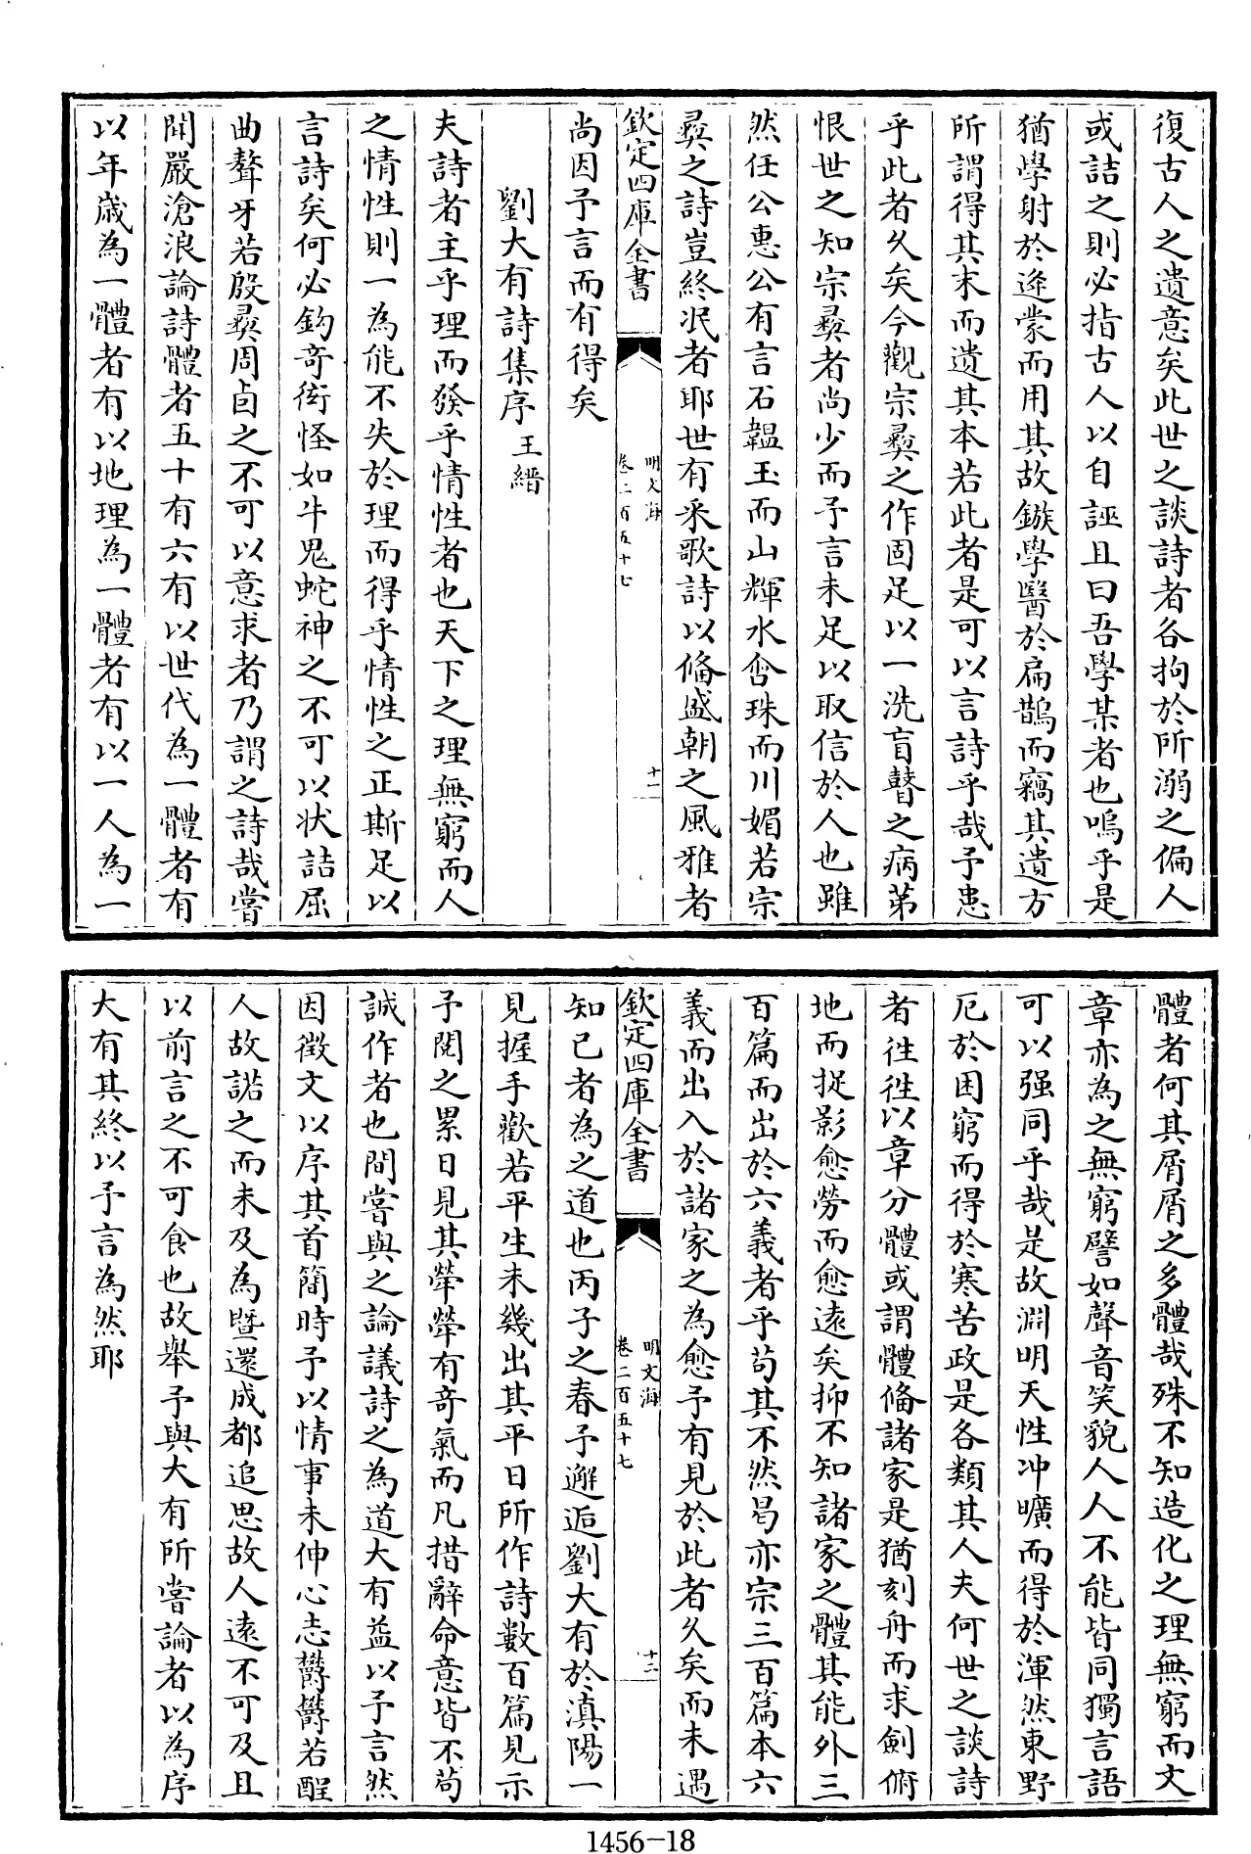 復古人之遺意矣此世之談詩者各拘於所溺之偏人
或詰之則必指古人以自誣且曰吾學某者也嗚乎是
猶學射於逄蒙而用其故鏃學醫於扁鵲而竊其遺方
所謂得其末而遺其本若此者是可以言詩乎哉予患
乎此者久矣今觀宗彛之作固足以一洗盲瞽之病第
恨世之知宗彛者尚少而予言未足以取信於人也雖
然任公惠公有言石韞玉而山輝水含珠而川媚若宗
彛之詩豈終泯者耶世有采歌詩以備盛朝之風雅者
欽定四庫全書
明文海
卷二百五十七
十二
尚因予言而有得矣
劉大有詩集序 王縉
夫詩者主乎理而發乎情性者也天下之理無窮而人
之情性則一為能不失於理而得乎情性之正斯足以
言詩矣何必鈎奇衒怪如牛鬼蛇神之不可以狀詰屈
曲聱牙若殷彛周卣之不可以意求者乃謂之詩哉嘗
聞嚴滄浪論詩體者五十有六有以世代為一體者有
以年歲為一體者有以地理為一體者有以一人為一
體者何其屑屑之多體哉殊不知造化之理無窮而文
章亦為之無窮譬如聲音笑貌人人不能皆同獨言語
可以强同乎哉是故淵明天性冲曠而得於渾然東野
厄於困窮而得於寒苦政是各類其人夫何世之談詩
者徃徃以章分體或謂體備諸家是猶刻舟而求劍俯
地而捉影愈勞而愈遠矣抑不知諸家之體其能外三
百篇而出於六義者乎苟其不然曷亦宗三百篇本六
義而出入於諸家之為愈予有見於此者久矣而未遇
欽定四庫全書
明文海
卷二百五十七
十三
知已者為之道也丙子之春予邂逅劉大有於滇陽一
見握手歡若平生未幾出其平日所作詩數百篇見示
予閱之累日見其犖犖有奇氣而凡措辭命意皆不苟
誠作者也間嘗與之論議詩之為道大有益以予言然
因徴文以序其首簡時予以情事未伸心志欝欝若酲
人故諾之而未及為暨還成都追思故人遠不可及且
以前言之不可食也故舉予與大有所嘗論者以為序
大有其終以予言為然耶
1456-18